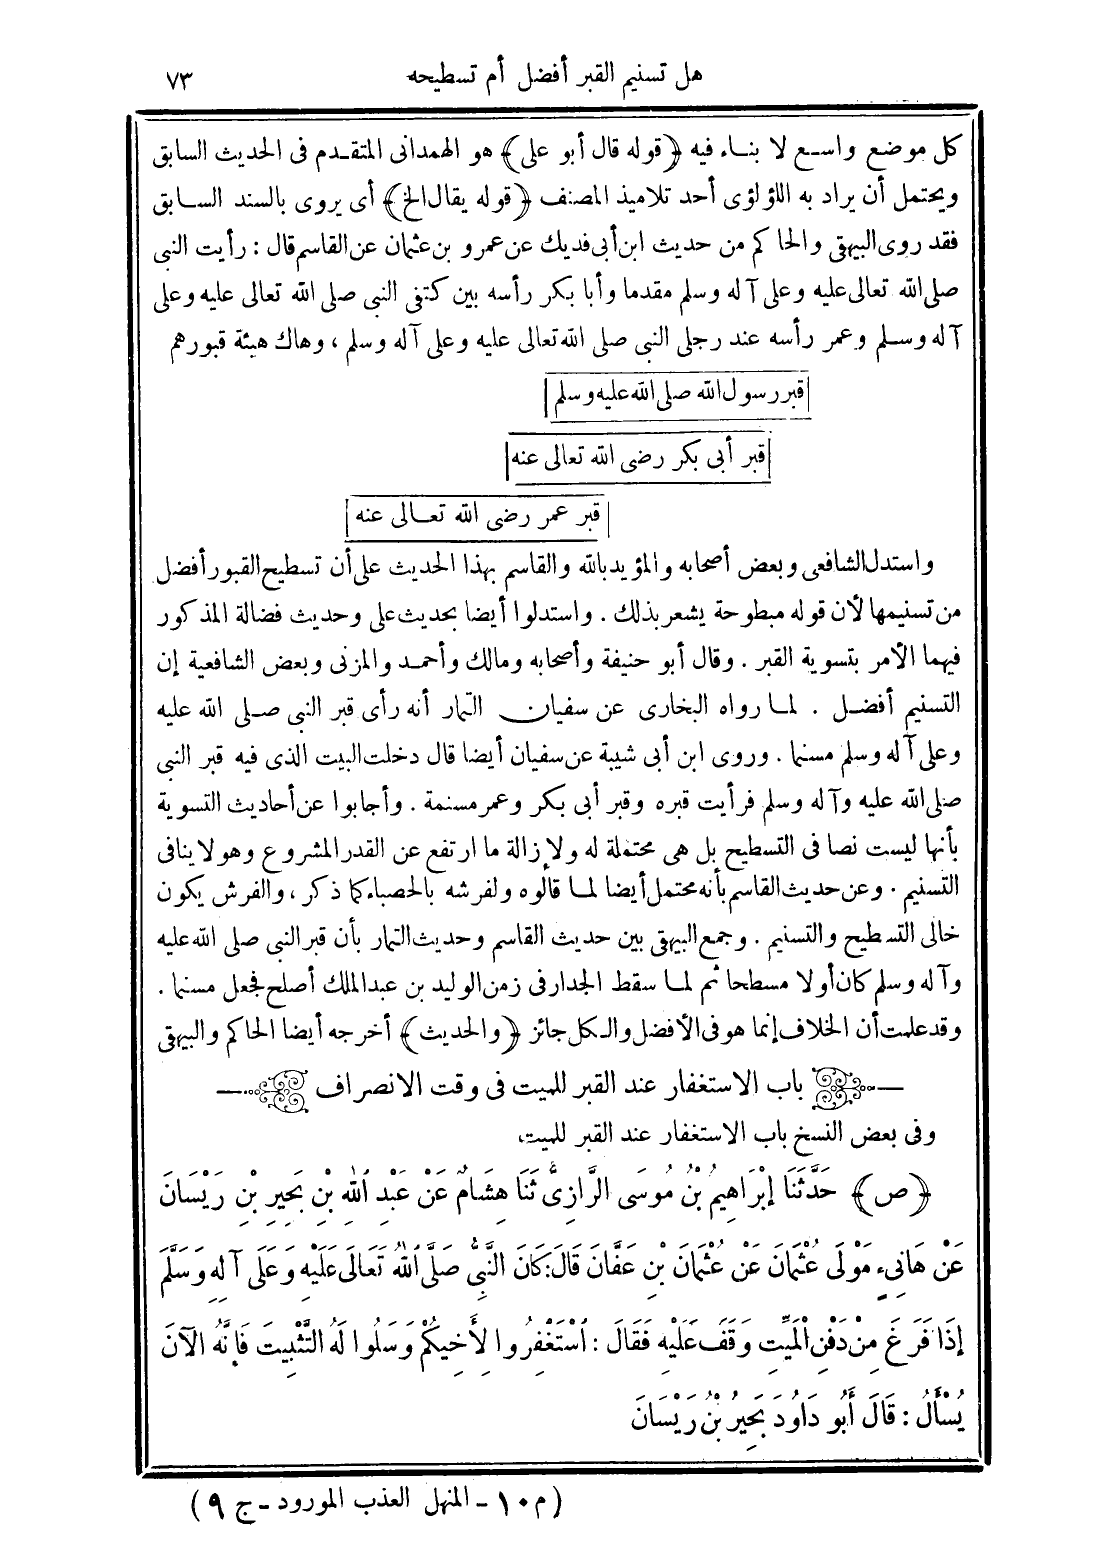 هل تسنيم القبر أفضل أم تسطيحه ٧٣
كل موضع واسع لا بناء فيه ﴿قوله قال أبو على﴾ هو الهمدانى المتقدم فى الحديث السابق
ويحتمل أن يراد به اللؤلؤى أحد تلاميذ المصنف ﴿قوله يقال الخ﴾ أى يروى بالسند السابق
فقد روى البيهقى والحاكم من حديث ابن أبى فديك عن عمرو بن عثمان عن القاسم قال : رأيت النبى
صلى الله تعالى عليه وعلى آله وسلم مقدما وأبا بكر رأسه بين كتفى النبى صلى الله تعالى عليه وعلى
آله وسلم وعمر رأسه عند رجلى النبى صلى الله تعالى عليه وعلى آله وسلم ، وهاك هيئة قبورهم
قبر رسول الله صلى الله عليه وسلم
قبر أبى بكر رضى الله تعالى عنه
قبر عمر رضى الله تعالى عنه
واستدل الشافعى وبعض أصحابه والمؤيد بالله والقاسم بهذا الحديث على أن تسطيح القبور أفضل
من تسنيمها لأن قوله مبطوحة يشعر بذلك . واستدلوا أيضا بحديث على وحديث فضالة المذكور
فيهما الأمر بتسوية القبر . وقال أبو حنيفة وأصحابه ومالك وأحمد والمزنى وبعض الشافعية إن
التسنيم أفضل . لما رواه البخارى عن سفيان التمار أنه رأى قبر النبى صلى الله عليه
وعلى آله وسلم مسنما . وروى ابن أبى شيبة عن سفيان أيضا قال دخلت البيت الذى فيه قبر النبى
صلى الله عليه وآله وسلم فرأيت قبره وقبر أبى بكر وعمر مسنمة . وأجابوا عن أحاديث التسوية
بأنها ليست نصا فى التسطيح بل هى محتملة له ولإزالة ما ارتفع عن القدر المشروع وهو لا ينافى
التسنيم . وعن حديث القاسم بأنه محتمل أيضا لما قالوه ولفرشه بالحصباء كما ذكر ، والفرش يكون
خالى التسطيح والتسنيم . وجمع البيهقى بين حديث القاسم وحديث التمار بأن قبر النبى صلى الله عليه
وآله وسلم كان أولا مسطحا ثم لما سقط الجدار فى زمن الوليد بن عبد الملك أصلح فجعل مسنما .
وقد علمت أن الخلاف إنما هو فى الأفضل والكل جائز ﴿والحديث﴾ أخرجه أيضا الحاكم والبيهقى
باب الاستغفار عند القبر للميت فى وقت الانصراف
وفى بعض النسخ باب الاستغفار عند القبر للميت
﴿ص﴾ حَدَّثَنَا إِبْرَاهِيمُ بْنُ مُوسَى الرَّازِىُّ ثَنَا هِشَامٌ عَنْ عَبْدِ اللهِ بْنِ بَحِيرِ بْنِ رَيْسَانَ
عَنْ هَانِىءٍ مَوْلَى عُثْمَانَ عَنْ عُثْمَانَ بْنِ عَفَّانَ قَالَ: كَانَ النَّبِىُّ صَلَّى اللهُ تَعَالَى عَلَيْهِ وَعَلَى آلِهِ وَسَلَّمَ
إِذَا فَرَغَ مِنْ دَفْنِ الْمَيِّتِ وَقَفَ عَلَيْهِ فَقَالَ : اسْتَغْفِرُوا لِأَخِيكُمْ وَسَلُوا لَهُ التَّثْبِيتَ فَإِنَّهُ الآنَ
يُسْأَلُ : قَالَ أَبُو دَاوُدَ بَحِيرُ بْنُ رَيْسَانَ
(م ١٠ - المنهل العذب المورود - ج ٩)